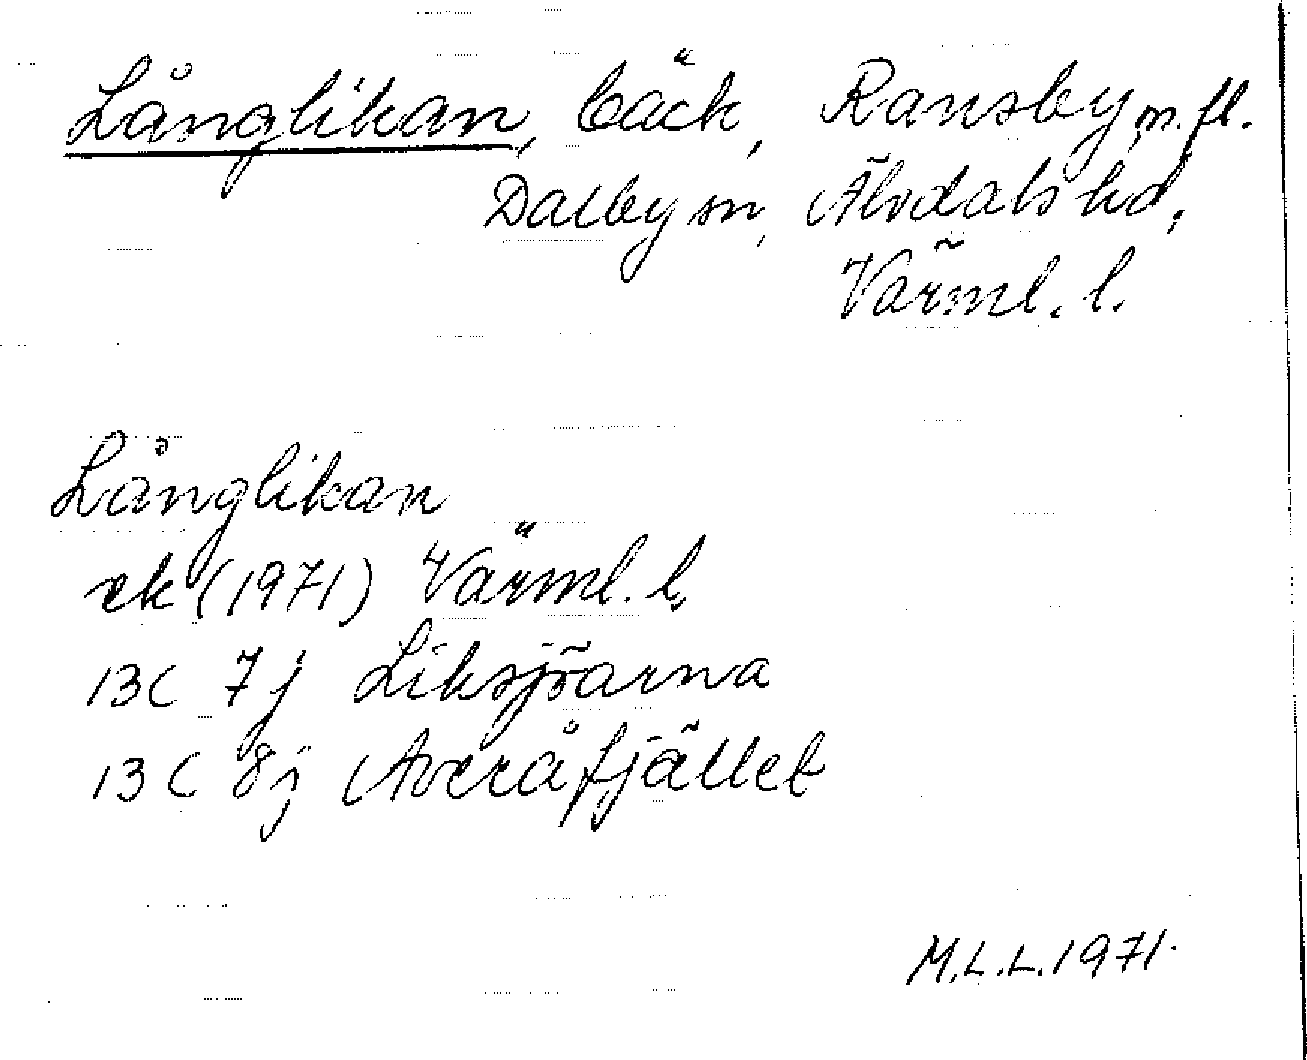 Långlikan, bäck, Ransby m.fl.
Dalby sn, Älvdals hd,
Värml. l.
Långlikan
ek (1971) Värml. l.
13C 7j Liksjöarna
13C 8j Averåfjället
M.L.L. 1971.